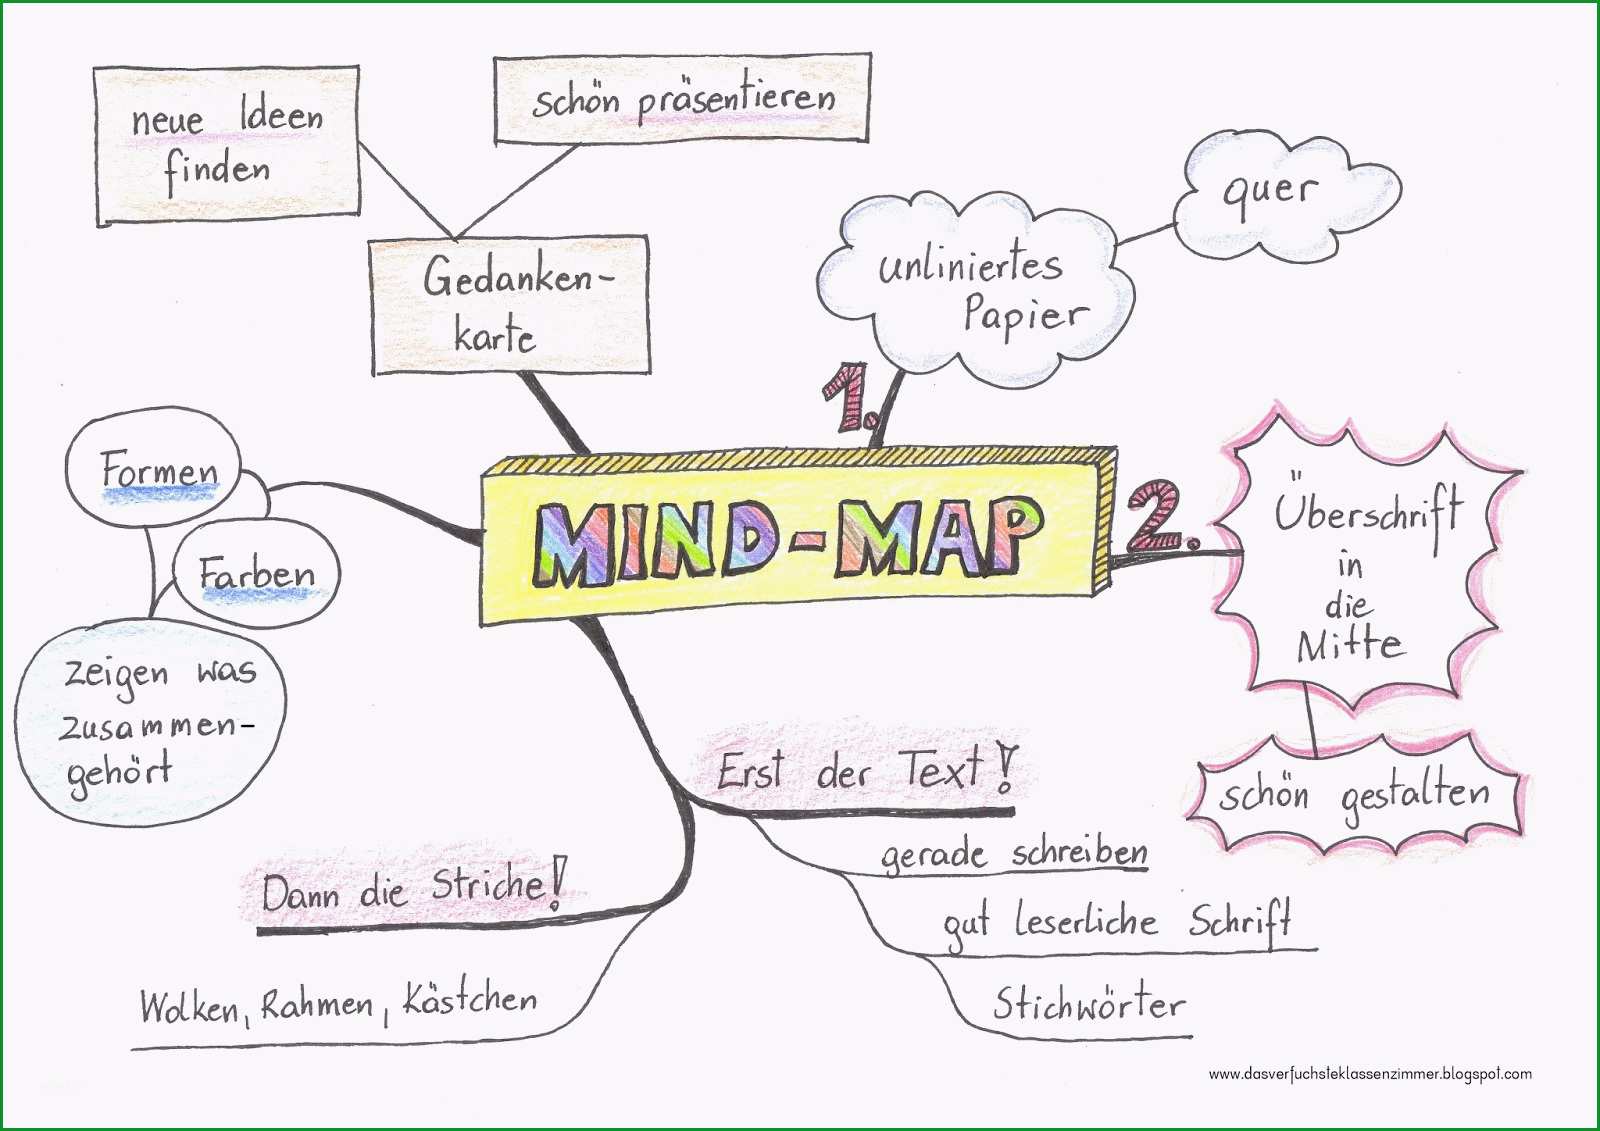 neue Ideen
finden
schön präsentieren
Gedanken-
karte
quer
unliniertes
Papier
1.
MIND-MAP
2.
Überschrift
in
die
Mitte
schön gestalten
Formen
Farben
zeigen was
zusammen-
gehört
Erst der Text!
gerade schreiben
gut leserliche Schrift
Stichwörter
Dann die Striche!
Wolken, Rahmen, Kästchen
www.dasverfuchsteklassenzimmer.blogspot.com